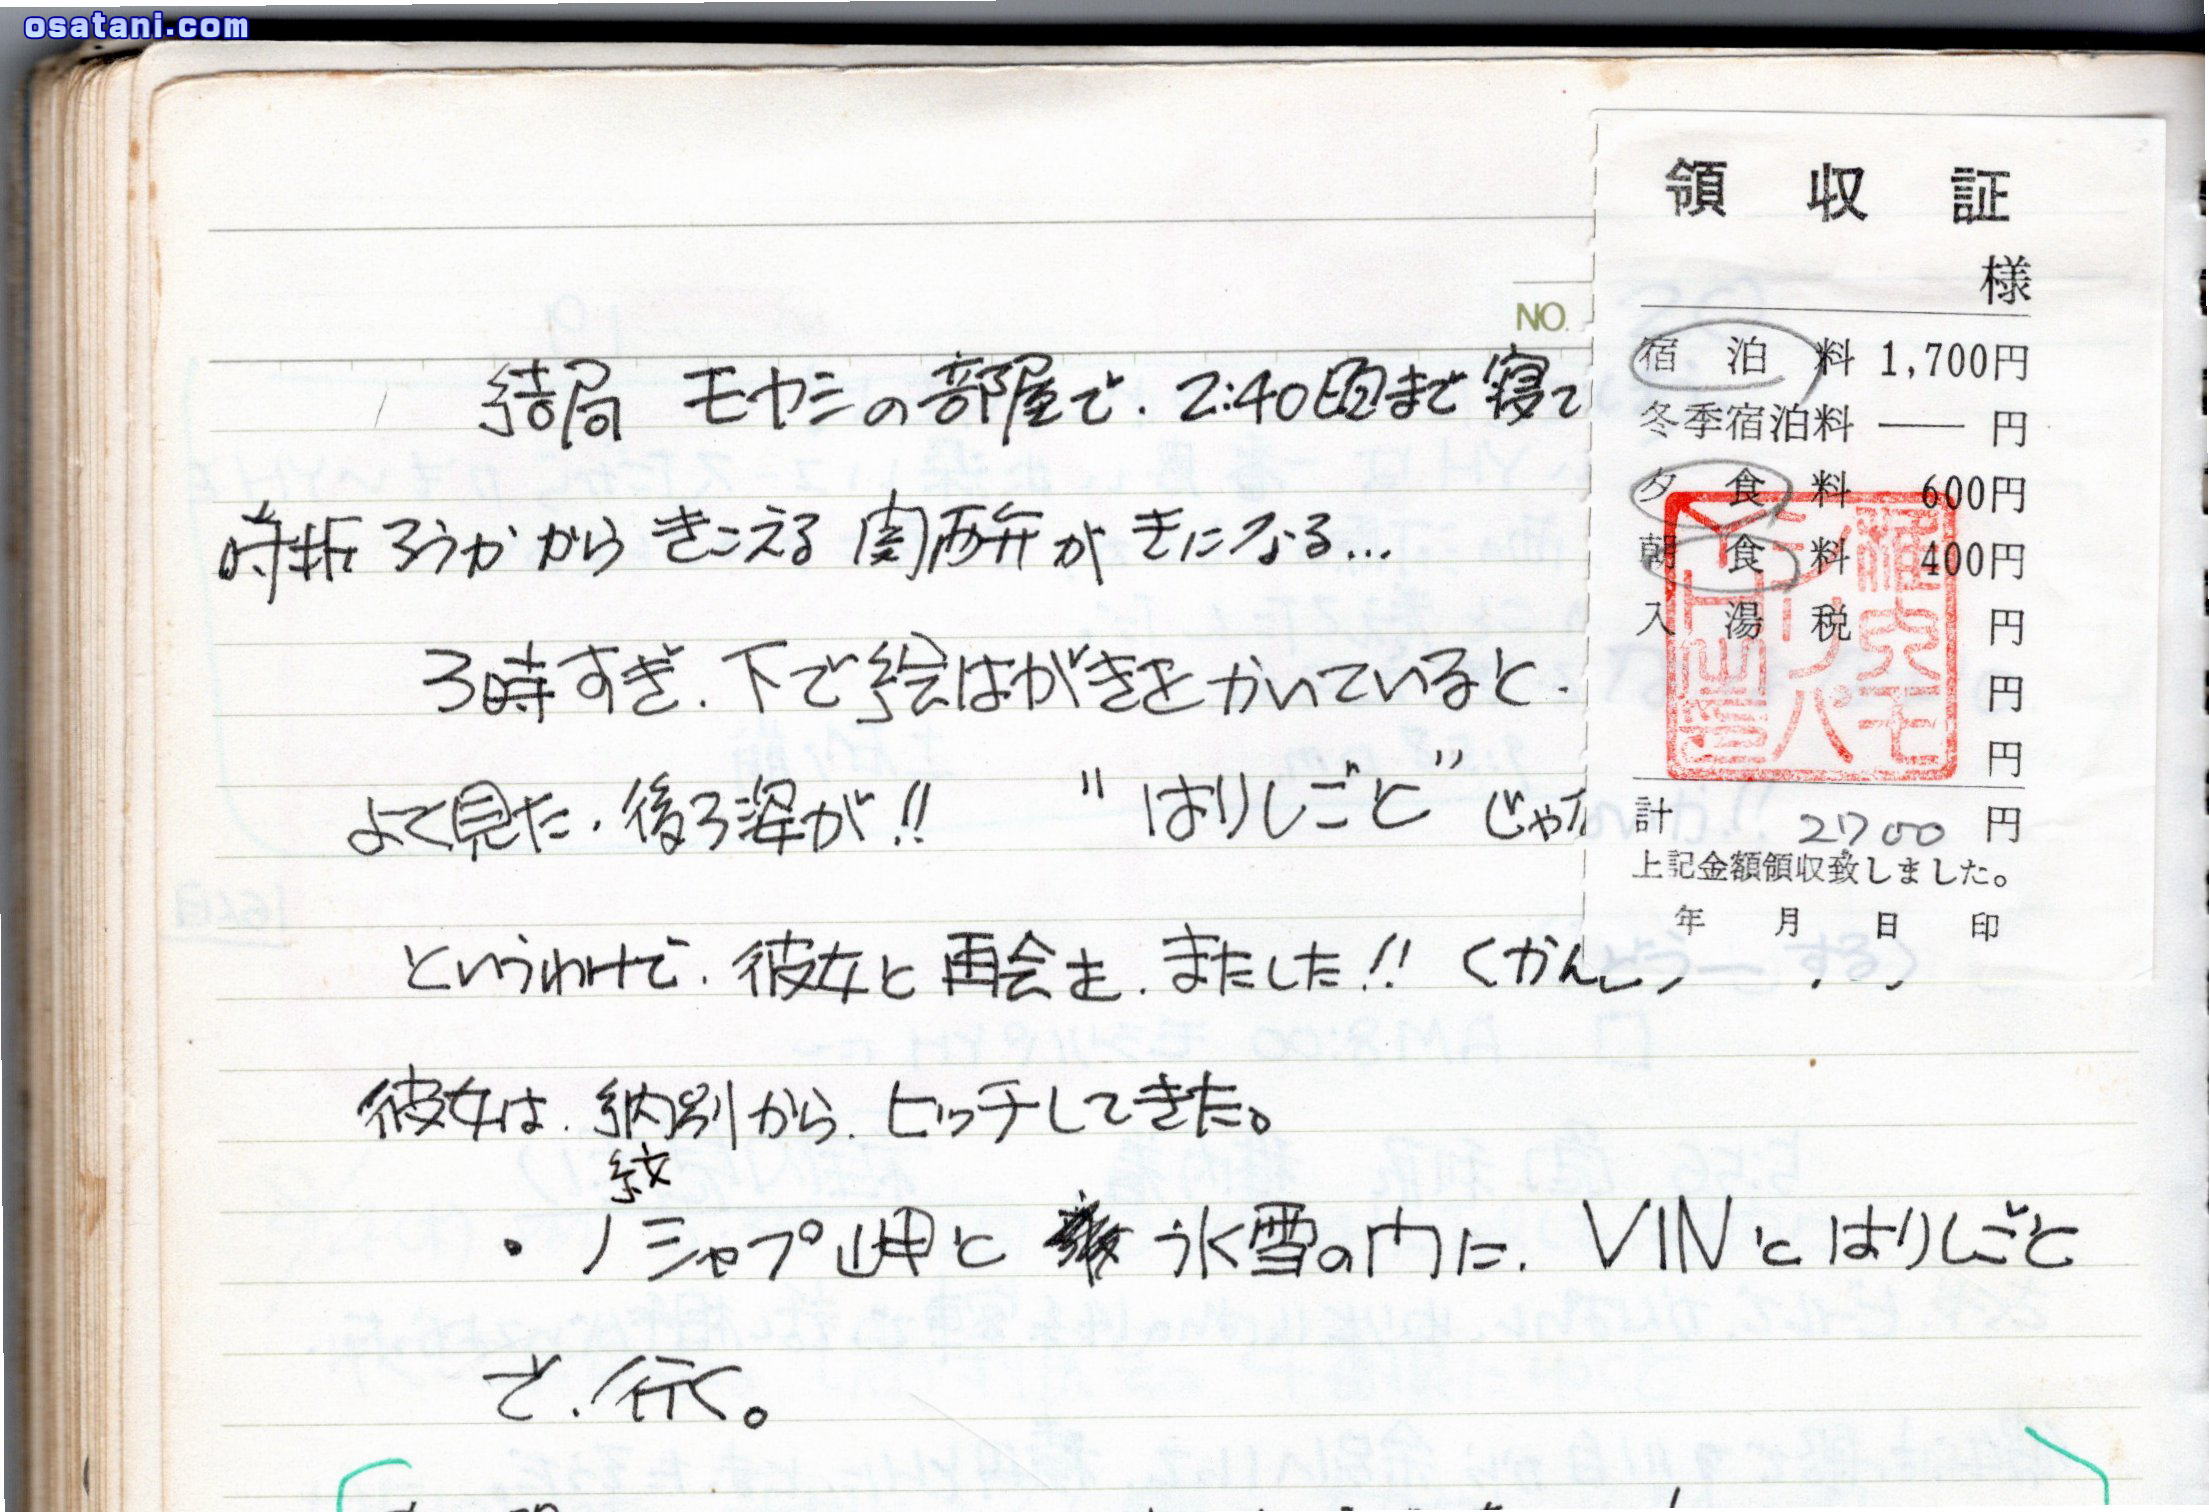 osatani.com
NO.
結局 モヤシの部屋で、2:40頃まで寝て
時折 ろうかから きこえる 関西弁が きになる…
3時すぎ、下で絵はがきをかいていると、
よく見た、後ろ姿が!! "はりしごと" じゃな
というわけで、彼女と再会を、またした!! くかん
彼女は、納別から、ヒッチしてきた。
紋
・ノシャプ岬と 氷雪の門に、VINとはりしごと
で、行く。
領収証
様
宿泊料 1,700円
冬季宿泊料 —— 円
夕食料 600円
朝食料 400円
入湯税 円
円
円
計 2700 円
上記金額領収致しました。
年 月 日 印
稚内モ
シリパ
YH